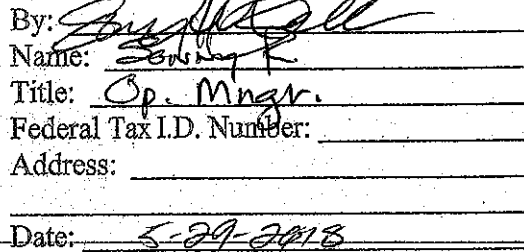 By:
Name:
Title: Op. Mngr.
Federal Tax I.D. Number:
Address:
Date: 5-29-2018